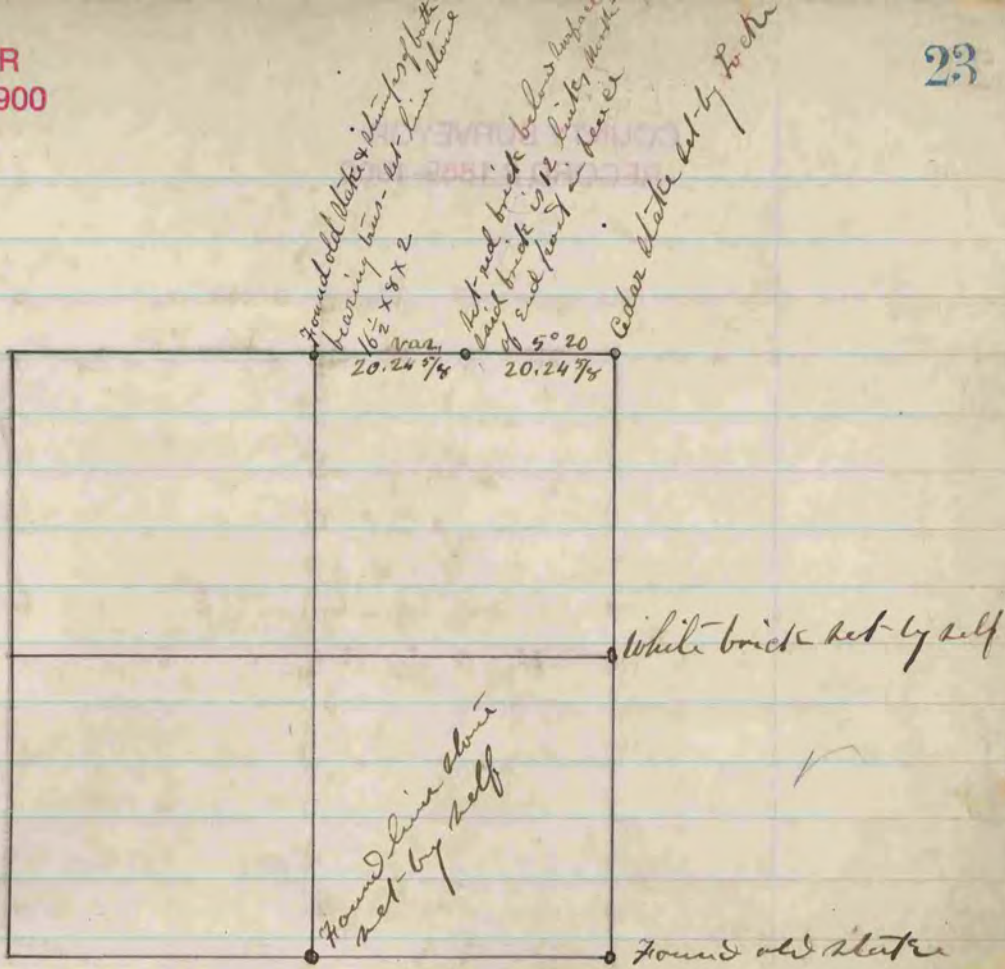 R
900
23
Found old stake & stumps of both
bearing trees - set lime stone
16½ x 8 x 2
set red brick below surface
said brick is 12 links North
of End post in fence
Cedar stake set by Locke
var. 5° 20
20.24 5/8
20.24 5/8
White brick set by self
Found lime stone
set by self
Found old stake
COUNTY SURVEYOR
RECORD 1885-1900